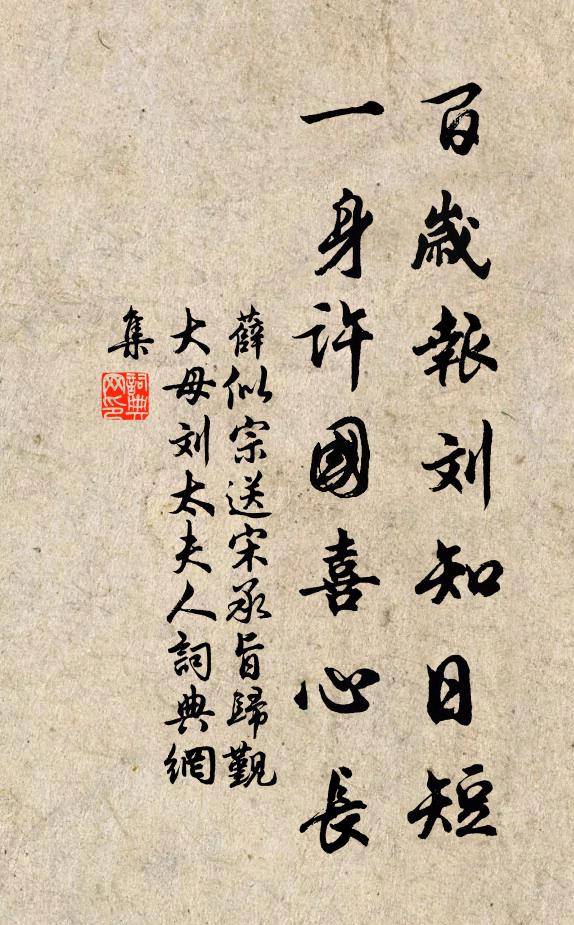 百歲報刘知日短
一身許國喜心長
薛似宗送宋承旨歸覲
大母刘太夫人詞典網
集
詞典
网印